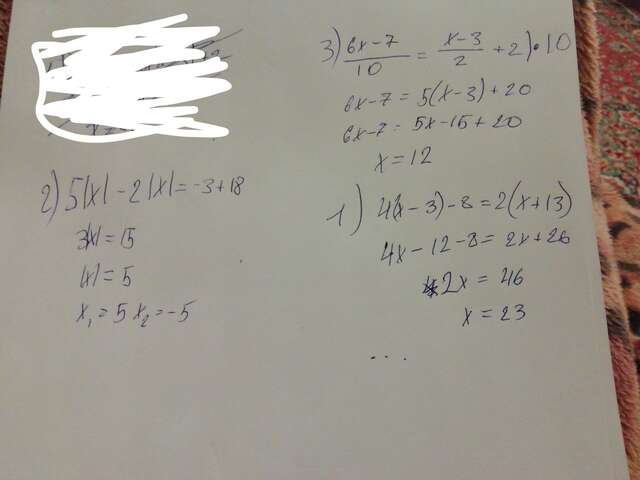 2) 5|x| - 2|x| = -3 + 18
3|x| = 15
|x| = 5
x₁ = 5 x₂ = -5
3) (6x - 7)/10 = (x - 3)/2 + 2) • 10
6x - 7 = 5(x - 3) + 20
6x - 7 = 5x - 15 + 20
x = 12
1) 4(x - 3) - 8 = 2(x + 13)
4x - 12 - 8 = 2x + 26
2x = 46
x = 23
...